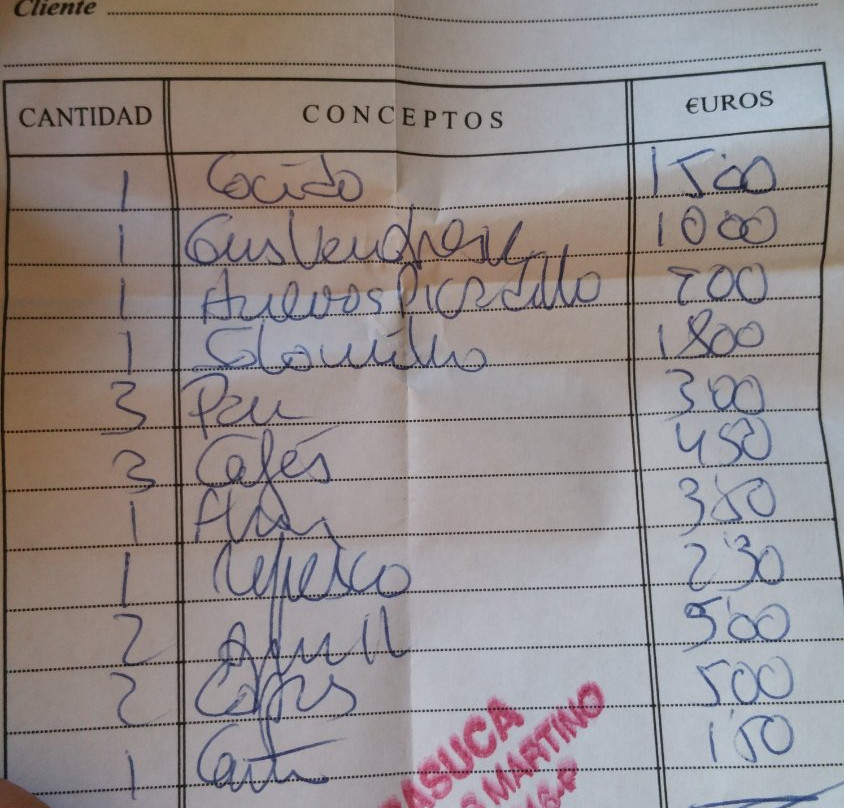 Cliente
CANTIDAD CONCEPTOS €UROS
1 Cocido 15'00
1 10'00
1 Huevos Picadillo 700
1 Solomillo 1800
3 Pan 3'00
3 Cafés 450
1 Flan 3'50
1 Refresco 2'30
2 5'00
2 500
1 1'50
ASUCA
MARTINO